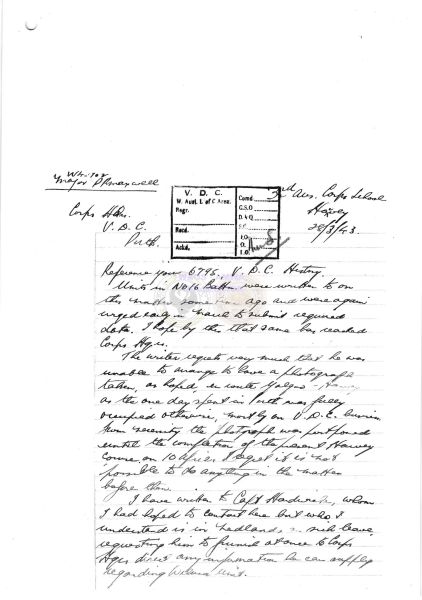 Writer
Major P R Maxwell
2nd Aus. Corps School
Harvey
28/3/43
Corps Hdrs.
V. D. C.
Perth.
V. D. C.
W. Aust. L of C Area.
Regr.
Recd.
Ackd.
Comd
G.S.O
D.A.Q
S.C.
I.O.
O.
I.O.
Reference your 6795, V.D.C. History.
Units in No 16 Battn were written to on
this matter some time ago and were again
urged early in March to submit required
data. I hope by this that same has reached
Corps Hqrs.
The writer regrets very much that he was
unable to arrange to have a photograph
taken, as hoped, en route
as the one day spent in Perth was fully
occupied otherwise, mostly on V.D.C. business
the photograph was postponed
until the completion of the present Harvey
Course on 10 April. I regret it is not
possible to do anything in the matter
before then.
I have written to Capt whom
I had hoped to contact here but who I
understand is in Nedlands sick leave,
requesting him to furnish at once to Corps
Hqrs direct any information he can supply
regarding unit.